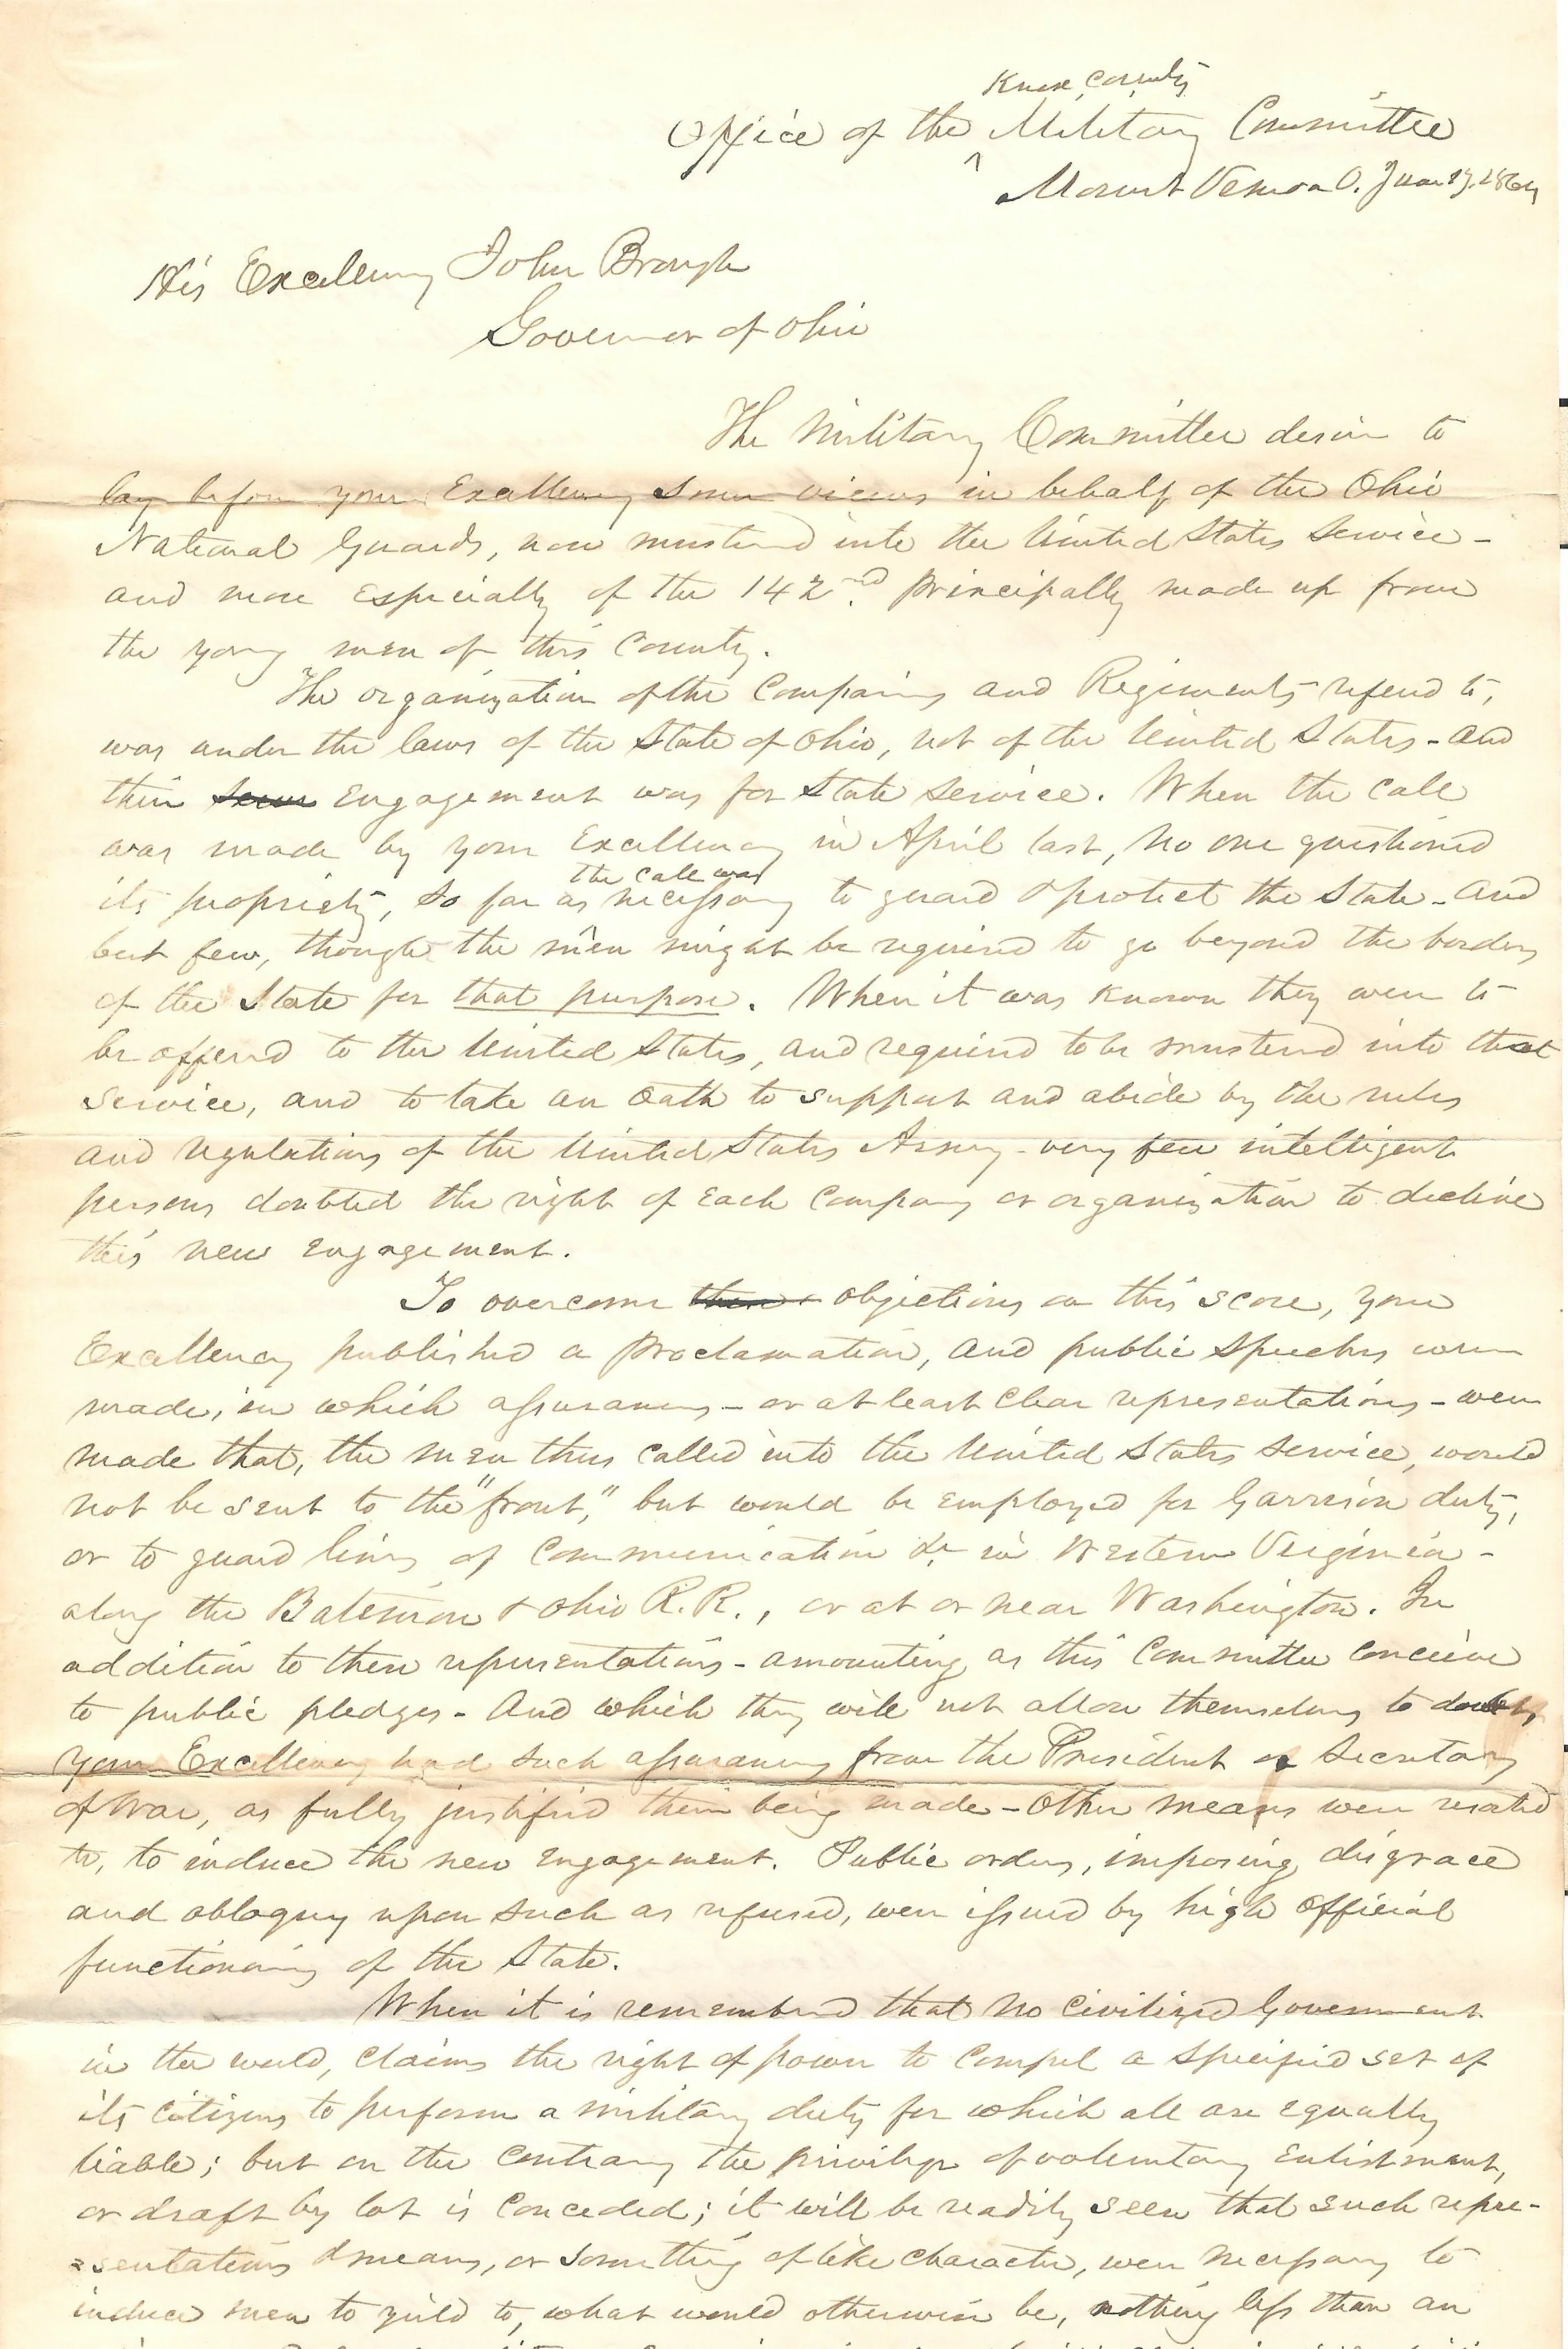 Knox County
Office of the ^ Military Committee
Mount Vernon O. June 1864
His Excellency John Brough
Governor of Ohio
The Military Committee desire to
lay before your Excellency some views in behalf of the Ohio
National Guards, now mustered into the United States Service -
and more especially of the 142nd. principally made up from
the young men of this County.
The organization of the Companies and Regiments refered to,
was under the laws of the State of Ohio, not of the United States - and
their engagement was for State service. When the call
was made by your Excellency in April last, no one questioned
the call was
its propriety, so far as necessary to guard & protect the State - and
but few, though the men might be required to go beyond the borders
of the State for that purpose. When it was known they were to
be offered to the United States, and required to be mustered into that
service, and to take an oath to support and abide by the rules
and regulations of the United States Army - very few intelligent
persons doubted the right of each company or organization to decline
this new engagement.
To overcome objections on this score, your
Excellency published a Proclamation, and public speeches were
made, in which assurances - or at least clear representations - were
made that, the men thus called into the United States service, would
not be sent to the "front," but would be employed for Garrison duty,
or to guard lines of Communication &c in Western Virginia -
along the Baltimore & Ohio R.R., or at or near Washington. In
addition to these representations - amounting as this Committee conceive
to public pledges - And which they will not allow themselves to doubt,
your Excellency had such assurances from the President or Secretary
of War, as fully justified their being made - Other means were resorted
to, to induce the new engagement. Public orders, imposing disgrace
and obloquy upon such as refused, were issued by high official
functionaries of the State.
When it is remembered that no civilized Government
in the world, claims the right of power to compel a specified set of
its citizens to perform a military duty for which all are equally
liable; but on the contrary the privilege of voluntary enlistment,
or draft by lot is conceded; it will be readily seen that such repre-
sentations & means, or something of like character, were necessary to
induce men to yield to, what would otherwise be, nothing less than an